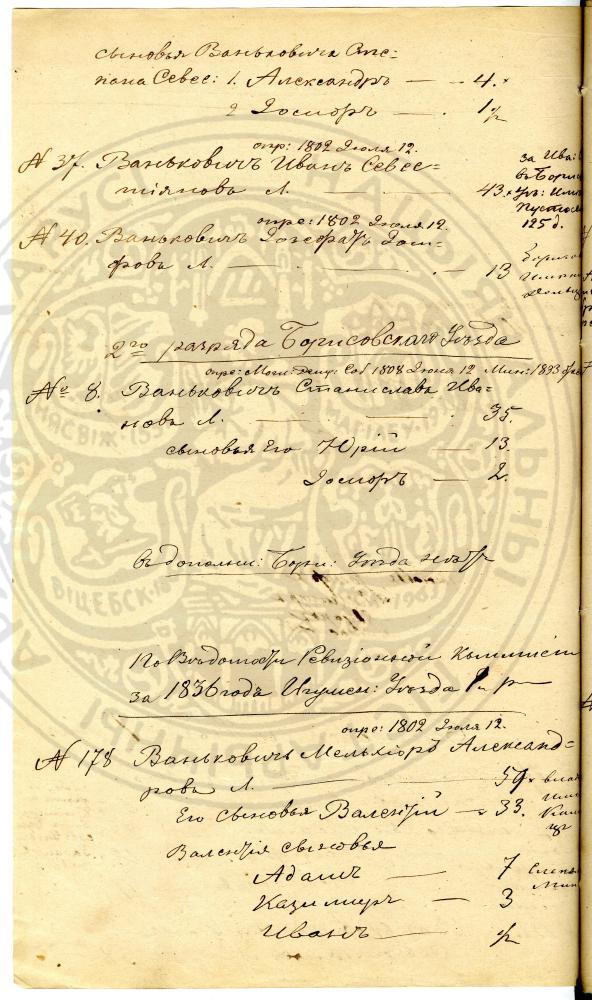 сыновья Ваньковича Сте-
пана Севес: 1. Александръ — 4.
2 Іосифъ — 1/2
опр: 1802 Іюля 12.
№ 37. Ваньковичъ Иванъ Севес-
тіяновъ Л. — 43.
за Ива:
въ Борис
уѣ: Имѣ
Пустос
125 д.
опре: 1802 Іюля 12.
№ 40. Ваньковичъ Іозефатъ Іоси-
фовъ Л. — 13
2го разряда Борисовскаго Уѣзда
опре: Могил: Соб 1808 Іюня 12 Мин: 1833
№ 8. Ваньковичъ Станиславъ Ива-
новъ Л. — 35.
сыновья Его Юрій — 13.
Іосифъ — 2.
въ дополни: Бори: Уѣзда нѣтъ
По Вѣдомости Ревизіонной Коммисіи
за 1836 годъ Игумен: Уѣзда
опре: 1802 Іюля 12.
№ 178 Ваньковичъ Мельхіоръ Александ-
ровъ Л. — 59
Его сыновья Валентій — 33.
Валентія сыновья
Адамъ — 7
Казимиръ — 3
Иванъ — 1/2
ВІЦЕБСК